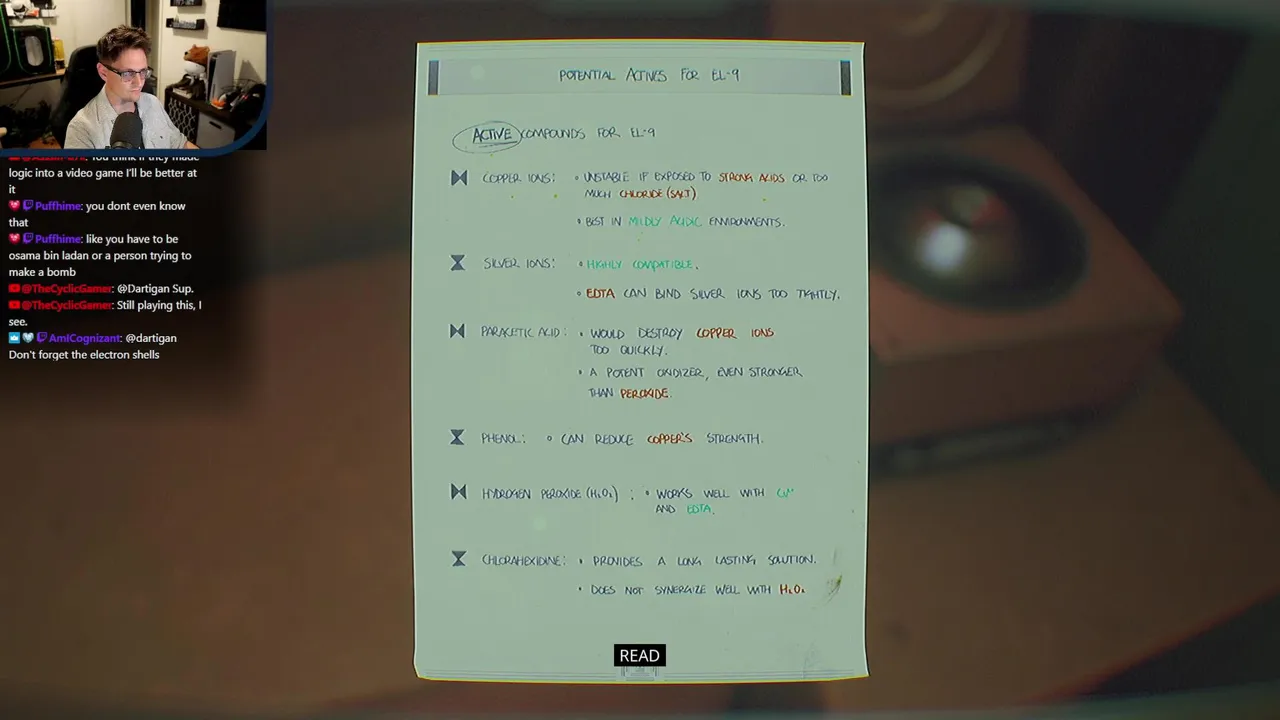 logic into a video game I'll be better at
it
Puffhime: you dont even know
that
Puffhime: like you have to be
osama bin ladan or a person trying to
make a bomb
@TheCyclicGamer: @Dartigan Sup.
@TheCyclicGamer: Still playing this, I
see.
AmICognizant: @dartigan
Don't forget the electron shells
POTENTIAL ACTIVES FOR EL-9
ACTIVE COMPOUNDS FOR EL-9
COPPER IONS: • UNSTABLE IF EXPOSED TO STRONG ACIDS OR TOO
MUCH CHLORIDE (SALT)
• BEST IN MILDLY ACIDIC ENVIRONMENTS.
SILVER IONS: • HIGHLY COMPATIBLE.
• EDTA CAN BIND SILVER IONS TOO TIGHTLY.
PARACETIC ACID: • WOULD DESTROY COPPER IONS
TOO QUICKLY.
• A POTENT OXIDIZER, EVEN STRONGER
THAN PEROXIDE.
PHENOL: • CAN REDUCE COPPER'S STRENGTH.
HYDROGEN PEROXIDE (H₂O₂) : • WORKS WELL WITH
AND EDTA.
CHLORAHEXIDINE: • PROVIDES A LONG LASTING SOLUTION.
• DOES NOT SYNERGIZE WELL WITH H₂O₂
READ